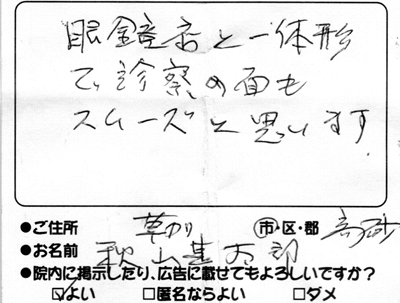 眼鏡店と一体形
で診察の面も
スムーズと思います
●ご住所 草加 市・区・郡 高砂
●お名前 秋山 太郎
●院内に掲示したり、広告に載せてもよろしいですか?
☑よい □匿名ならよい □ダメ